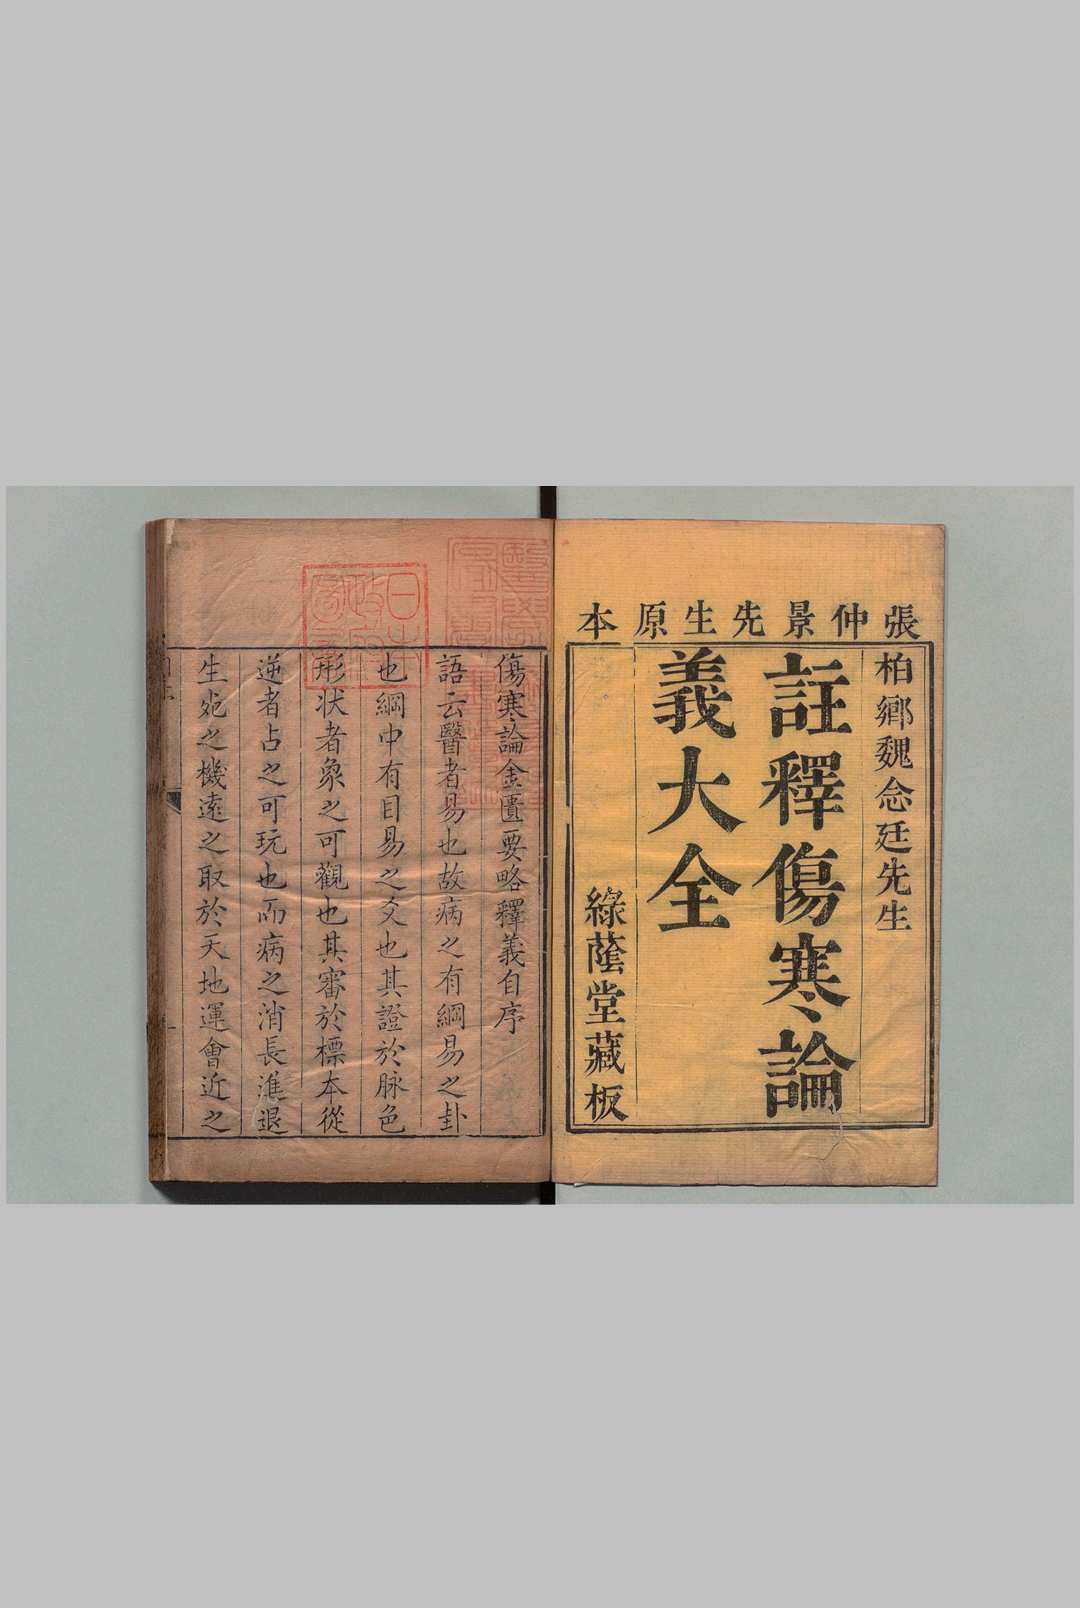 張仲景先生原本
柏鄉魏念廷先生
註釋傷寒論
義大全
綠蔭堂藏板
傷寒論金匱要略釋義自序
語云醫者易也故病之有綱易之卦
也綱中有目易之爻也其證於脉色
形状者象之可觀也其審於標本從
逆者占之可玩也而病之消長進退
生死之機遠之取於天地運會近之